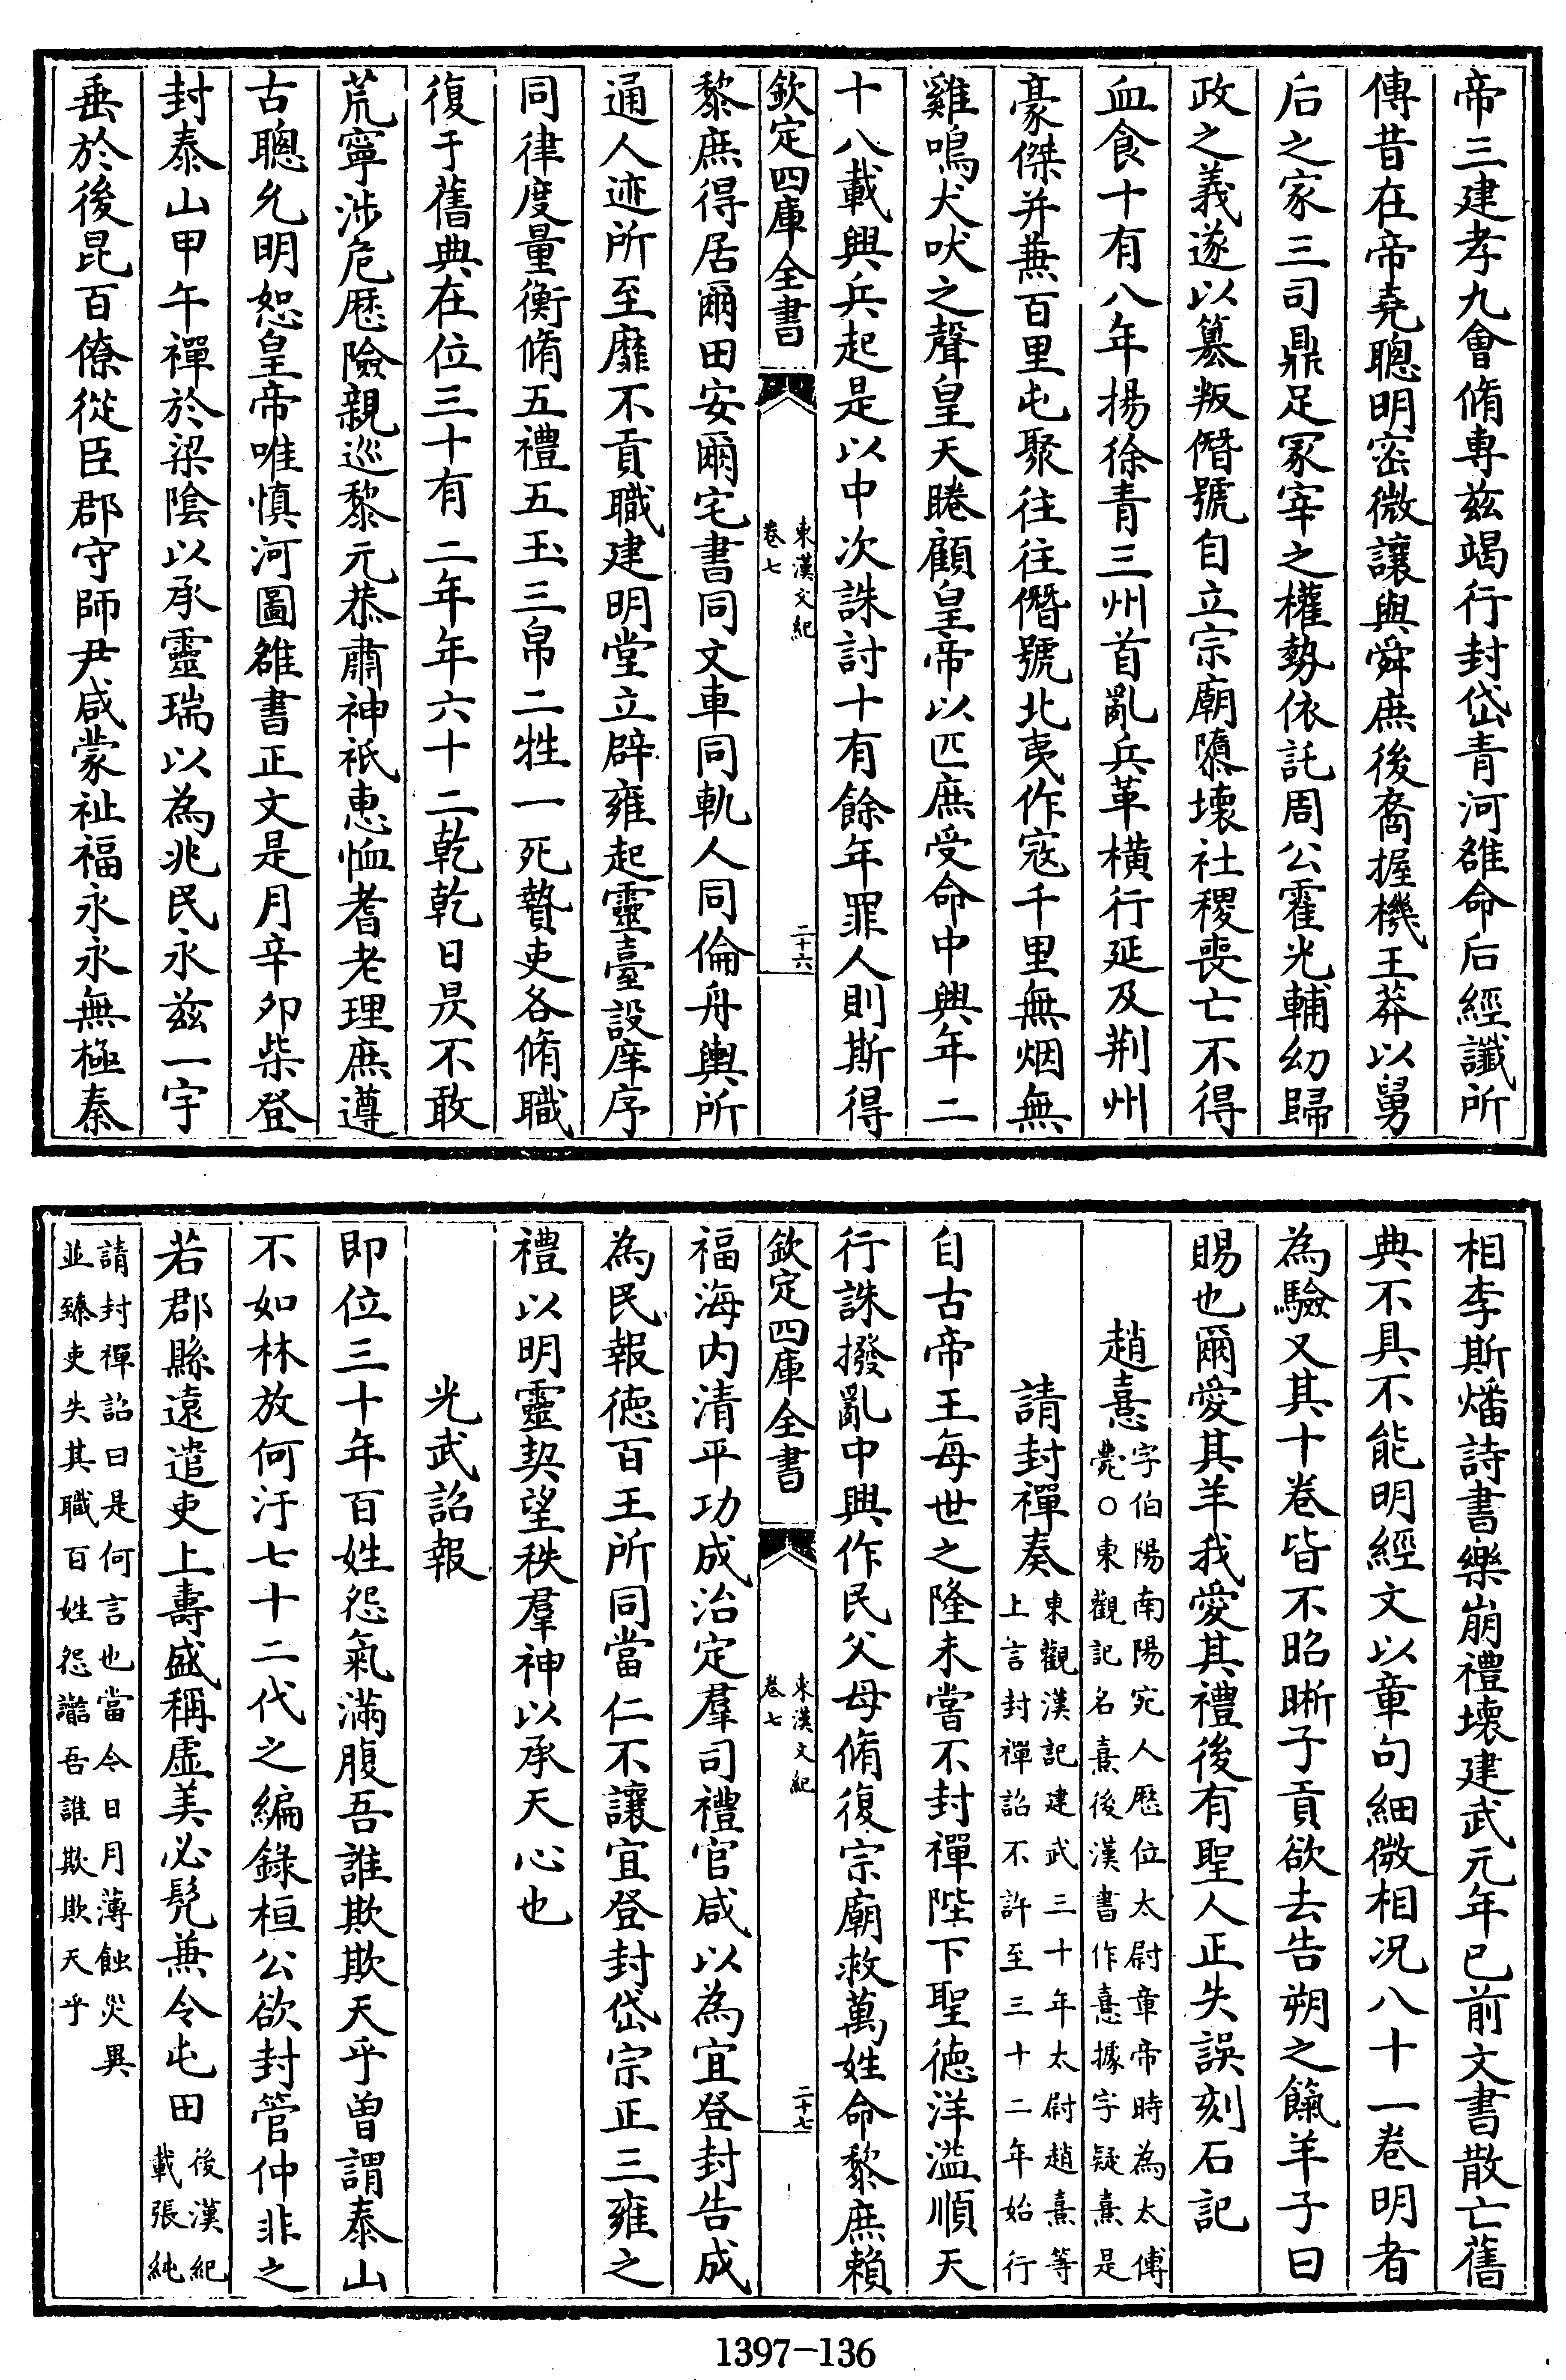 帝三建孝九會脩專兹竭行封岱青河雒命后經讖所
傳昔在帝堯聰明密微讓與舜庶後裔握機王莽以舅
后之家三司鼎足冢宰之權勢依託周公霍光輔幼歸
政之義遂以簒叛僭號自立宗廟隳壊社稷喪亡不得
血食十有八年揚徐青三州首亂兵革横行延及荆州
豪傑并兼百里屯聚往往僭號北夷作寇千里無烟無
雞鳴犬吠之聲皇天睠顧皇帝以匹庶受命中興年二
十八載興兵起是以中次誅討十有餘年罪人則斯得
欽定四庫全書
東漢文紀
卷七
二十六
黎庶得居爾田安爾宅書同文車同軌人同倫舟輿所
通人迹所至靡不貢職建明堂立辟雍起靈臺設庠序
同律度量衡脩五禮五玉三帛二牲一死贄吏各脩職
復于舊典在位三十有二年年六十二乾乾日昃不敢
荒寧涉危歴險親巡黎元恭肅神祇惠恤耆老理庶遵
古聰允明恕皇帝唯慎河圖雒書正文是月辛卯柴登
封泰山甲午禪於梁陰以承靈瑞以為兆民永兹一宇
垂於後昆百僚從臣郡守師尹咸蒙祉福永永無極秦
相李斯燔詩書樂崩禮壊建武元年已前文書散亡舊
典不具不能明經文以章句細微相况八十一卷明者
為驗又其十卷皆不昭晣子貢欲去告朔之餼羊子曰
賜也爾愛其羊我愛其禮後有聖人正失誤刻石記
趙憙字伯陽南陽宛人歴位太尉章帝時為太傅
薨○東觀記名熹後漢書作憙據字疑熹是
請封禪奏東觀漢記建武三十年太尉趙熹等
上言封禪詔不許至三十二年始行
自古帝王每世之隆未嘗不封禪陛下聖徳洋溢順天
行誅撥亂中興作民父母脩復宗廟救萬姓命黎庶賴
欽定四庫全書
東漢文紀
卷七
二十七
福海内清平功成治定羣司禮官咸以為宜登封告成
為民報徳百王所同當仁不讓宜登封岱宗正三雍之
禮以明靈契望秩羣神以承天心也
光武詔報
即位三十年百姓怨氣滿腹吾誰欺欺天乎曽謂泰山
不如林放何汙七十二代之編錄桓公欲封管仲非之
若郡縣遠遣吏上壽盛稱虚美必髠兼令屯田後漢紀
載張純
請封禪詔曰是何言也當今日月薄蝕災異
並臻吏失其職百姓怨讟吾誰欺欺天乎
1397-136